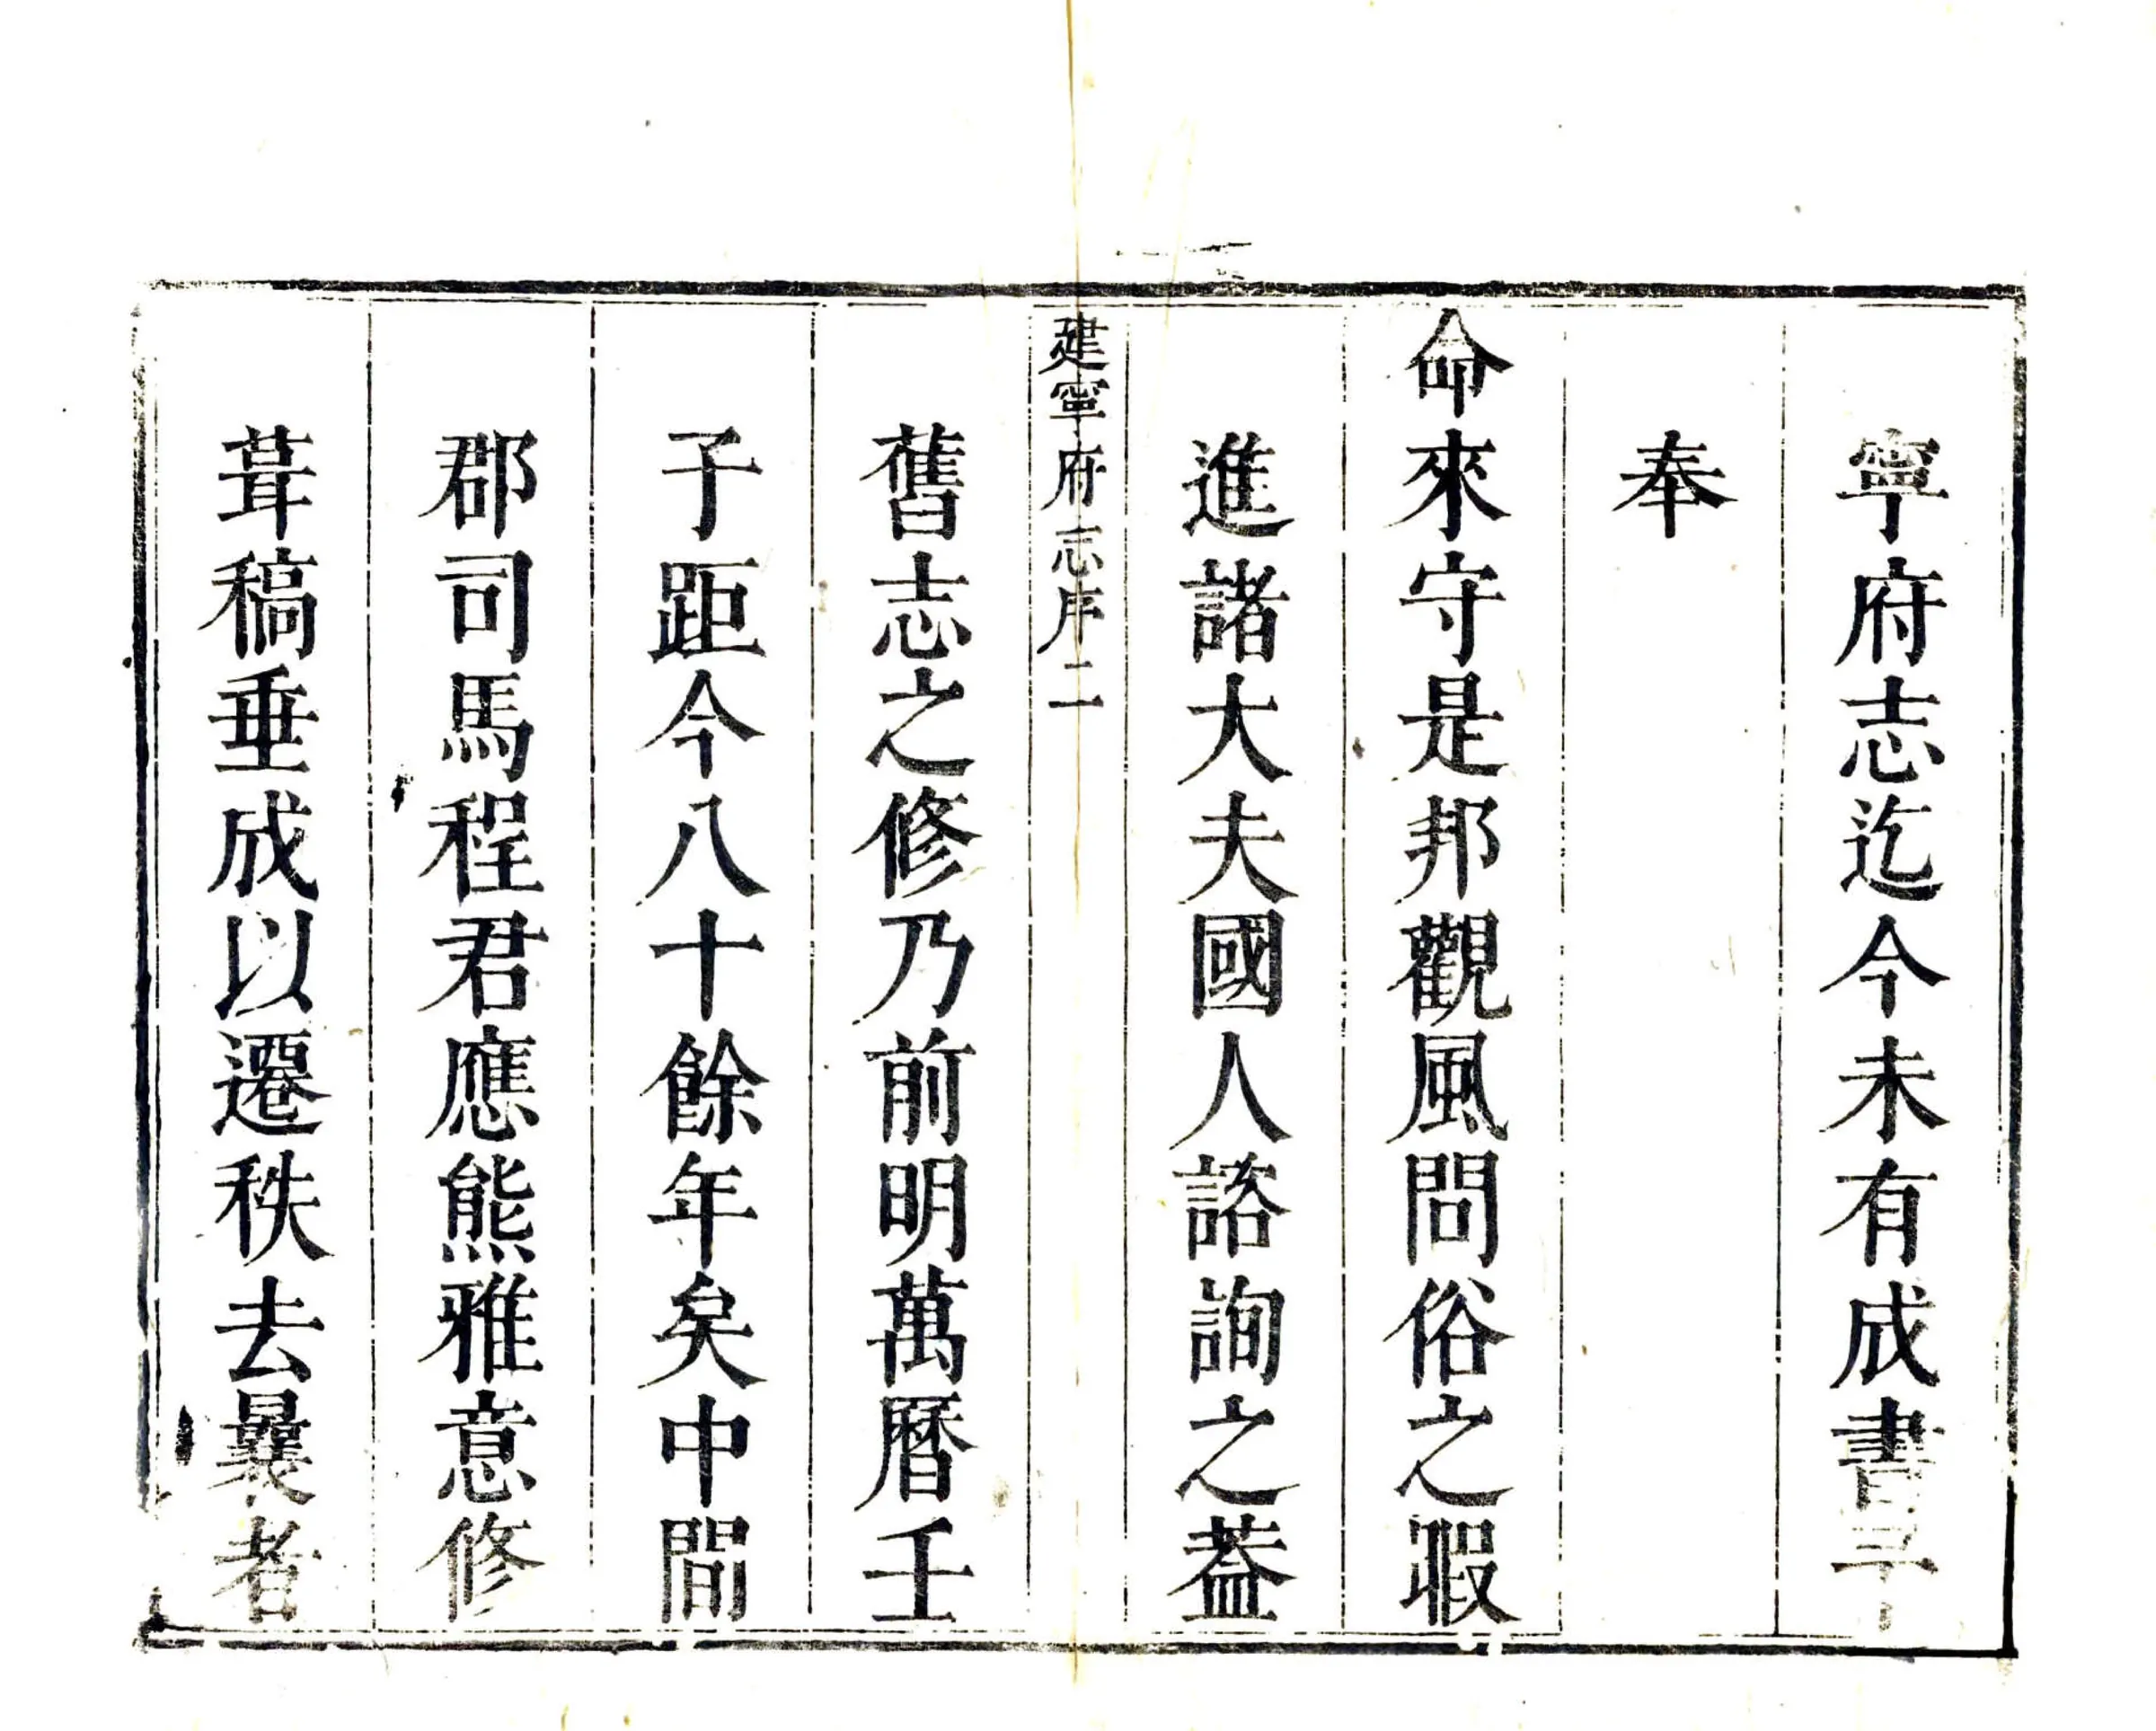 寧府志迄今未有成書予
奉
命來守是邦觀風問俗之暇
進諸大夫國人諮詢之葢
建寧府志序二
舊志之修乃前明萬曆壬
子距今八十餘年矣中間
郡司馬程君應熊雅意修
葺稿垂成以遷秩去曩者